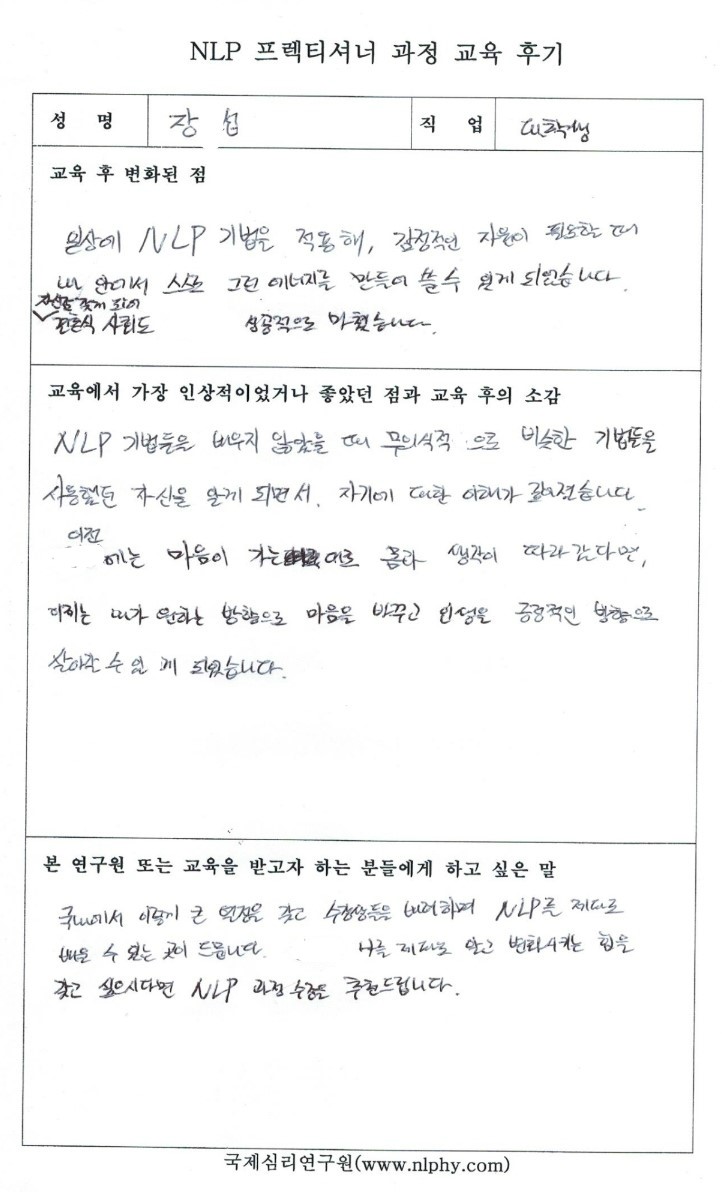 NLP 프렉티셔너 과정 교육 후기
성 명 장 섭 직 업 대학생
교육 후 변화된 점
일상에 NLP 기법을 적용해, 감정적인 자원이 필요할 때
내 안에서 스스로 그런 에너지를 만들어 쓸 수 있게 되었습니다.
자신감 갖게 되어
결혼식 사회도 성공적으로 마쳤습니다.
교육에서 가장 인상적이었거나 좋았던 점과 교육 후의 소감
NLP 기법들을 배우지 않았을 때 무의식적으로 비슷한 기법들을
사용했던 자신을 알게 되면서, 자기에 대한 이해가 깊어졌습니다.
이전
에는 마음이 가는 대로 몸과 생각이 따라간다면,
이제는 내가 원하는 방향으로 마음을 바꾸고 인생을 긍정적인 방향으로
살아갈 수 있게 되었습니다.
본 연구원 또는 교육을 받고자 하는 분들에게 하고 싶은 말
국내에서 이렇게 큰 열정을 갖고 수강생들을 배려하며 NLP를 제대로
배울 수 있는 곳이 드뭅니다. 나를 제대로 알고 변화시키는 힘을
갖고 싶으시다면 NLP 과정 수강을 추천드립니다.
국제심리연구원(www.nlphy.com)